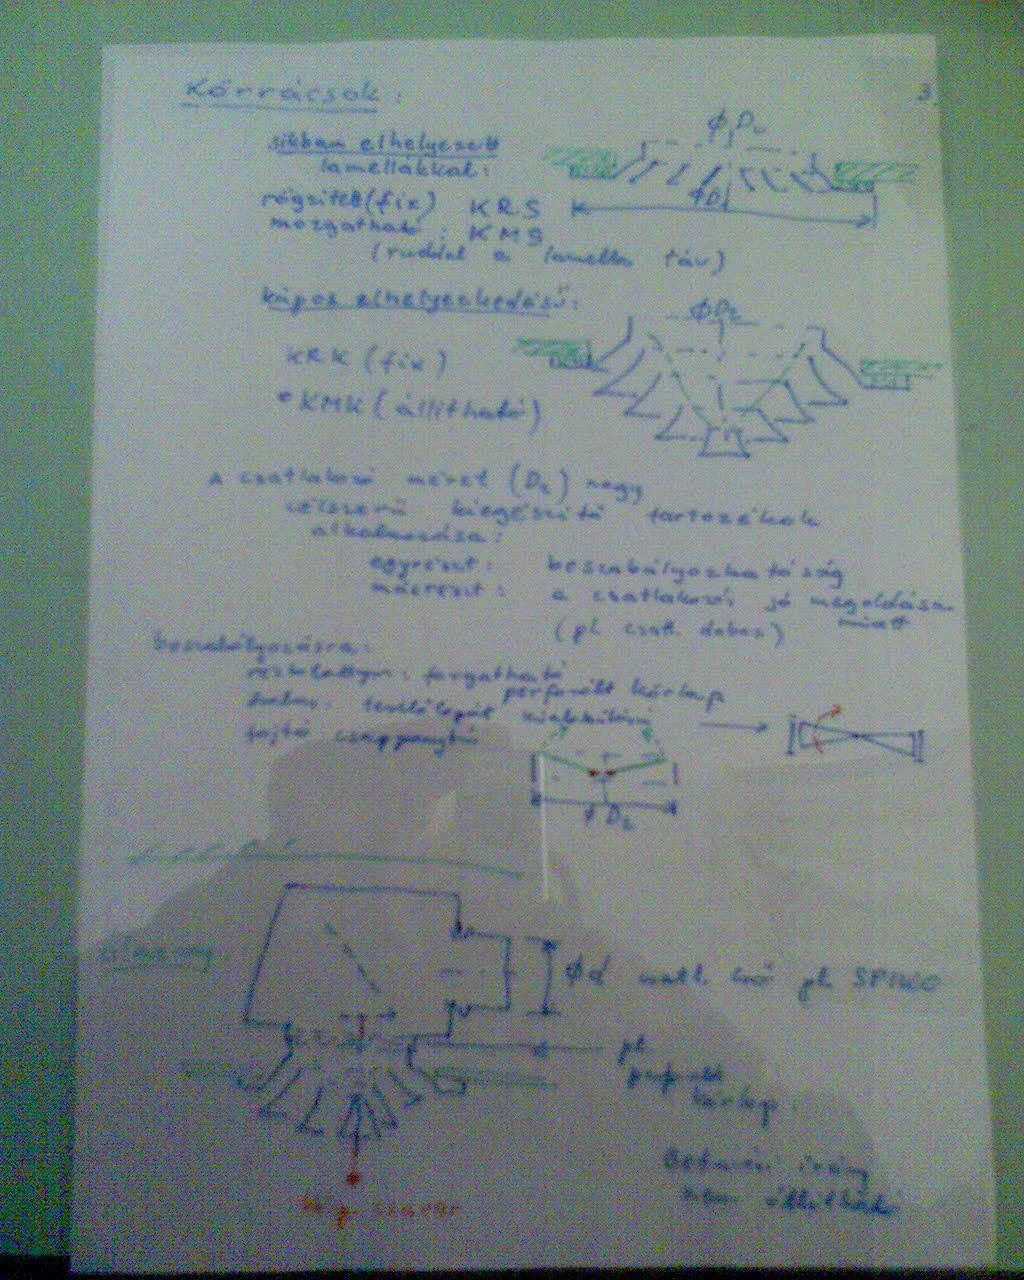 Körrácsok:
3.
síkban elhelyezett
lamellákkal:
ϕ D₂
rögzített (fix) KRS
ϕD
mozgatható: KMS
(ruddal a lamella táv)
kúpos elhelyezkedésű:
ϕD₂
KRK (fix)
• KMK (állítható)
A csatlakozó méret (D₂) nagy
célszerű kiegészítő tartozékok
alkalmazása:
egyrészt: beszabályozhatóság
másrészt: a csatlakozás jó megoldása
miatt
(pl. csatl. doboz)
beszabályozásra:
forgatható
perforált körlap
fojtó
ϕ D₂
ϕd csatl. cső pl. SPIKO
pl.
perforált
körlap
irány
nem állítható
csavar